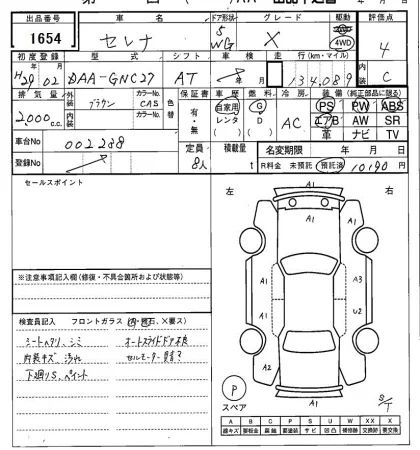 出品番号 車名 ドア形状 グレード 駆動 評価点
1654 セレナ 5 WG X 2WD 4WD 4
初度登録 型式 シフト 車検 走行(km・マイル) 内装
H29 年 02 月 DAA-GNC27 AT 年 月 134,089 C
排気量 外装 カラーNo. 色替 保証書 車歴 燃料 冷房 装備 (純正部品に限る)
2,000 c.c. ブラウン CAB 有・無 自家用 レンタ ( ) G D ( ) AC PS PW ABS
内装 カラーNo. エアB AW SR
革 ナビ TV
車台No 002288 定員 積載量 名変期限 年 月 日
登録No 8人 t R料金 未預託 預託済 10190 円
セールスポイント 左 右
A1
A1 A1
※注意事項記入欄(修復・不具合箇所および状態等)
A1 A3
A1 U2
検査員記入 フロントガラス (キズ、×要ス)
シートヘタリ、シミ オートスライドドア不良
内装キズ、汚れ
下廻りS、ペイント
A2 A1
P
スペア
A1
S/T
A B C P S U W X XX
線キズ 要板金 腐蝕 要塗装 サビ 凹凸 補修跡 交換跡 要交換